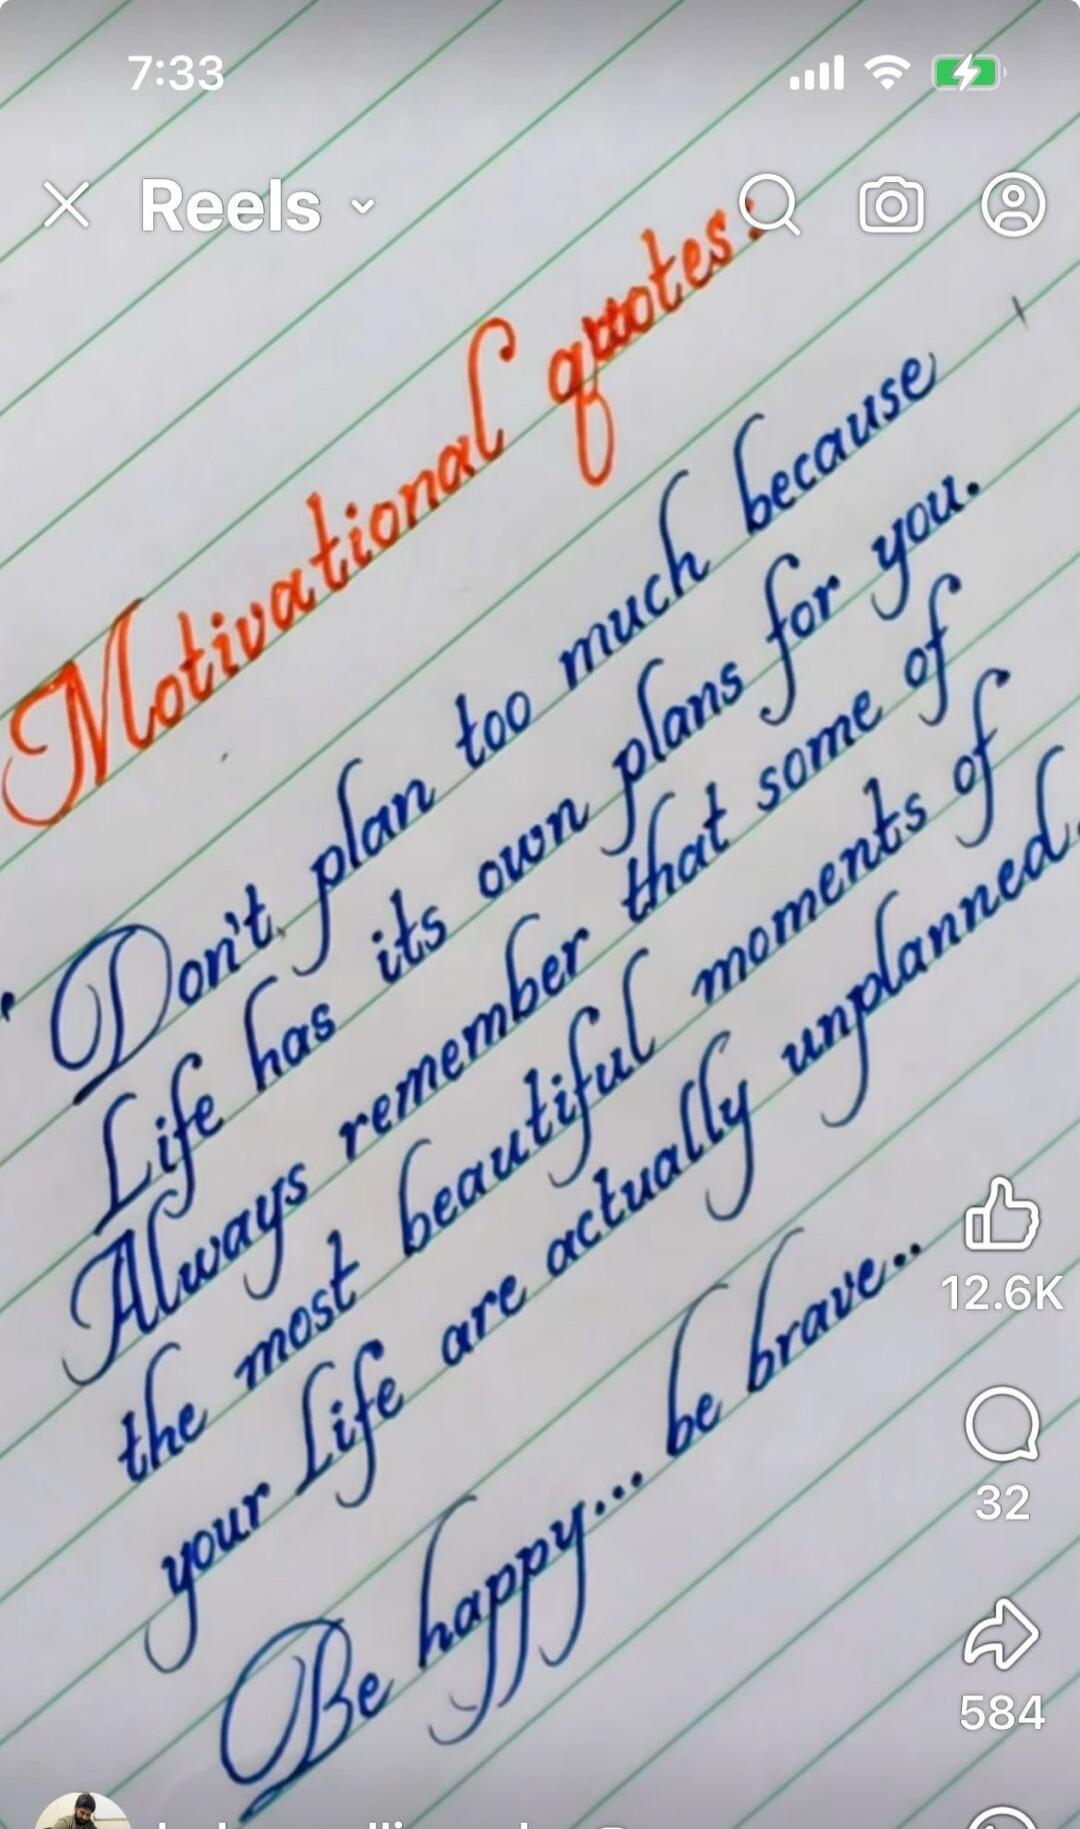 7:33
Reels
Motivational quotes:
Don't plan too much because
Life has its own plans for you.
Always remember that some of
the most beautiful moments of
your Life are actually unplanned.
Be happy... be brave..
12.6K
32
584